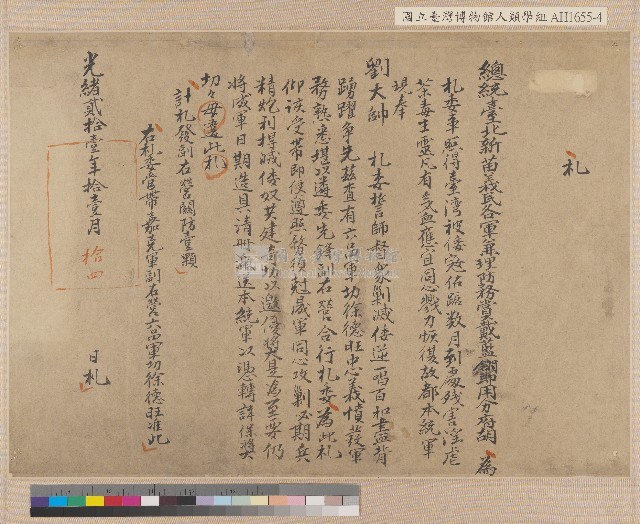 國立臺灣博物館人類學組 AH1655-4
總統臺北新苗義民各軍兼理防務賞戴藍翎即用分府胡 為
札
札委事照得臺灣被倭寇佔臨數月到處殘害淫虐
荼毒生靈凡有氣血應宜同心戮力恢復故都本統軍
現奉
劉大帥 札委誓師督隊剿滅倭逆一唱百和盡皆
踴躍爭先茲查有六品軍功徐德旺忠義憤發軍
務熟悉堪以遴委先鋒副右營合行札委為此札
仰該受帶即便遵照督領冠晟軍同心攻剿必期兵
精炮利掃滅倭奴其建奇功以邀優將大是為至要仍
將成軍日期造具清冊報送本統軍以憑轉詳保奬
切々毋違此札
計札發副右營關防壹顆
右札委官帶嘉義軍副右營六品軍功徐德旺准此
光緒貳拾壹年拾壹月 拾四 日札